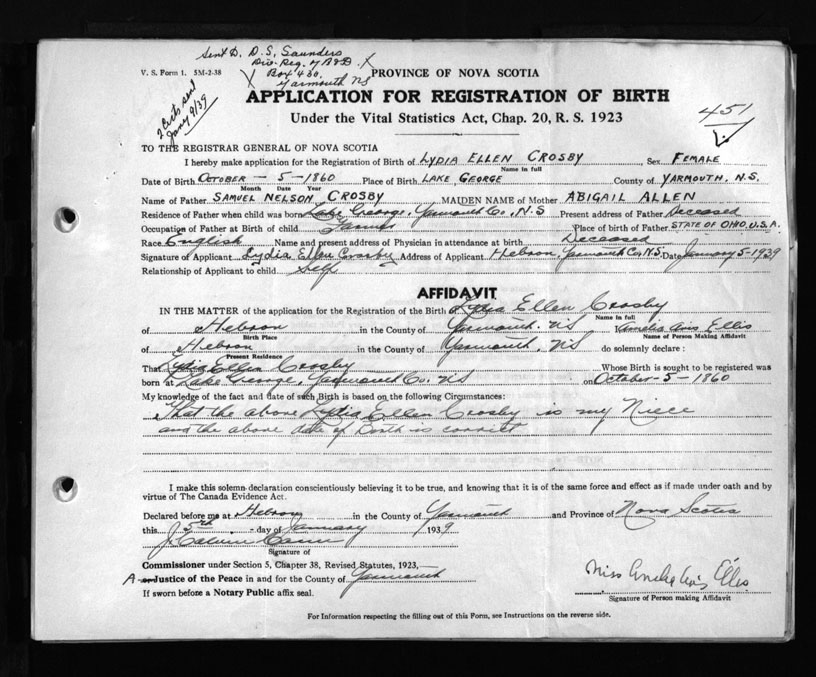 Sent D. D. S. Saunders
Div. Reg. of B & D. X
V. S. Form 1. 5M-2-38
X Box 430,
Yarmouth NS
PROVINCE OF NOVA SCOTIA
2 Certs sent
Jany 9/39
APPLICATION FOR REGISTRATION OF BIRTH
451
Under the Vital Statistics Act, Chap. 20, R. S. 1923
TO THE REGISTRAR GENERAL OF NOVA SCOTIA
I hereby make application for the Registration of Birth of LYDIA ELLEN CROSBY Sex FEMALE
Name in full
Date of Birth OCTOBER - 5 - 1860 Place of Birth LAKE GEORGE County of YARMOUTH, N.S.
Month Date Year
Name of Father SAMUEL NELSON CROSBY MAIDEN NAME of Mother ABIGAIL ALLEN
Residence of Father when child was born Lake George, Yarmouth Co., N.S Present address of Father Deceased
Occupation of Father at Birth of child Farmer Place of birth of Father STATE OF OHIO, U.S.A.
Race English Name and present address of Physician in attendance at birth Deceased
Signature of Applicant Lydia Ellen Crosby Address of Applicant Hebron, Yarmouth Co. N.S. Date January 5-1939
Relationship of Applicant to child Self
AFFIDAVIT
IN THE MATTER of the application for the Registration of the Birth of Lydia Ellen Crosby
Name in full
of Hebron in the County of Yarmouth, NS Ann Ellis
Birth Place Name of Person Making Affidavit
of Hebron in the County of Yarmouth, NS do solemnly declare :
Present Residence
That Lydia Ellen Crosby Whose Birth is sought to be registered was
born at Lake George, Yarmouth Co. NS on October-5-1860
My knowledge of the fact and date of such Birth is based on the following Circumstances:
That the above Lydia Ellen Crosby is my Niece
and the above date of Birth is correct
I make this solemn declaration conscientiously believing it to be true, and knowing that it is of the same force and effect as if made under oath and by
virtue of The Canada Evidence Act.
Declared before me at Hebron in the County of Yarmouth and Province of Nova Scotia
this 5th day of January 1939
J. Calvin
Signature of
Commissioner under Section 5, Chapter 38, Revised Statutes, 1923,
A or Justice of the Peace in and for the County of Yarmouth
Miss Ellis
If sworn before a Notary Public affix seal.
Signature of Person making Affidavit
For Information respecting the filling out of this Form, see Instructions on the reverse side.